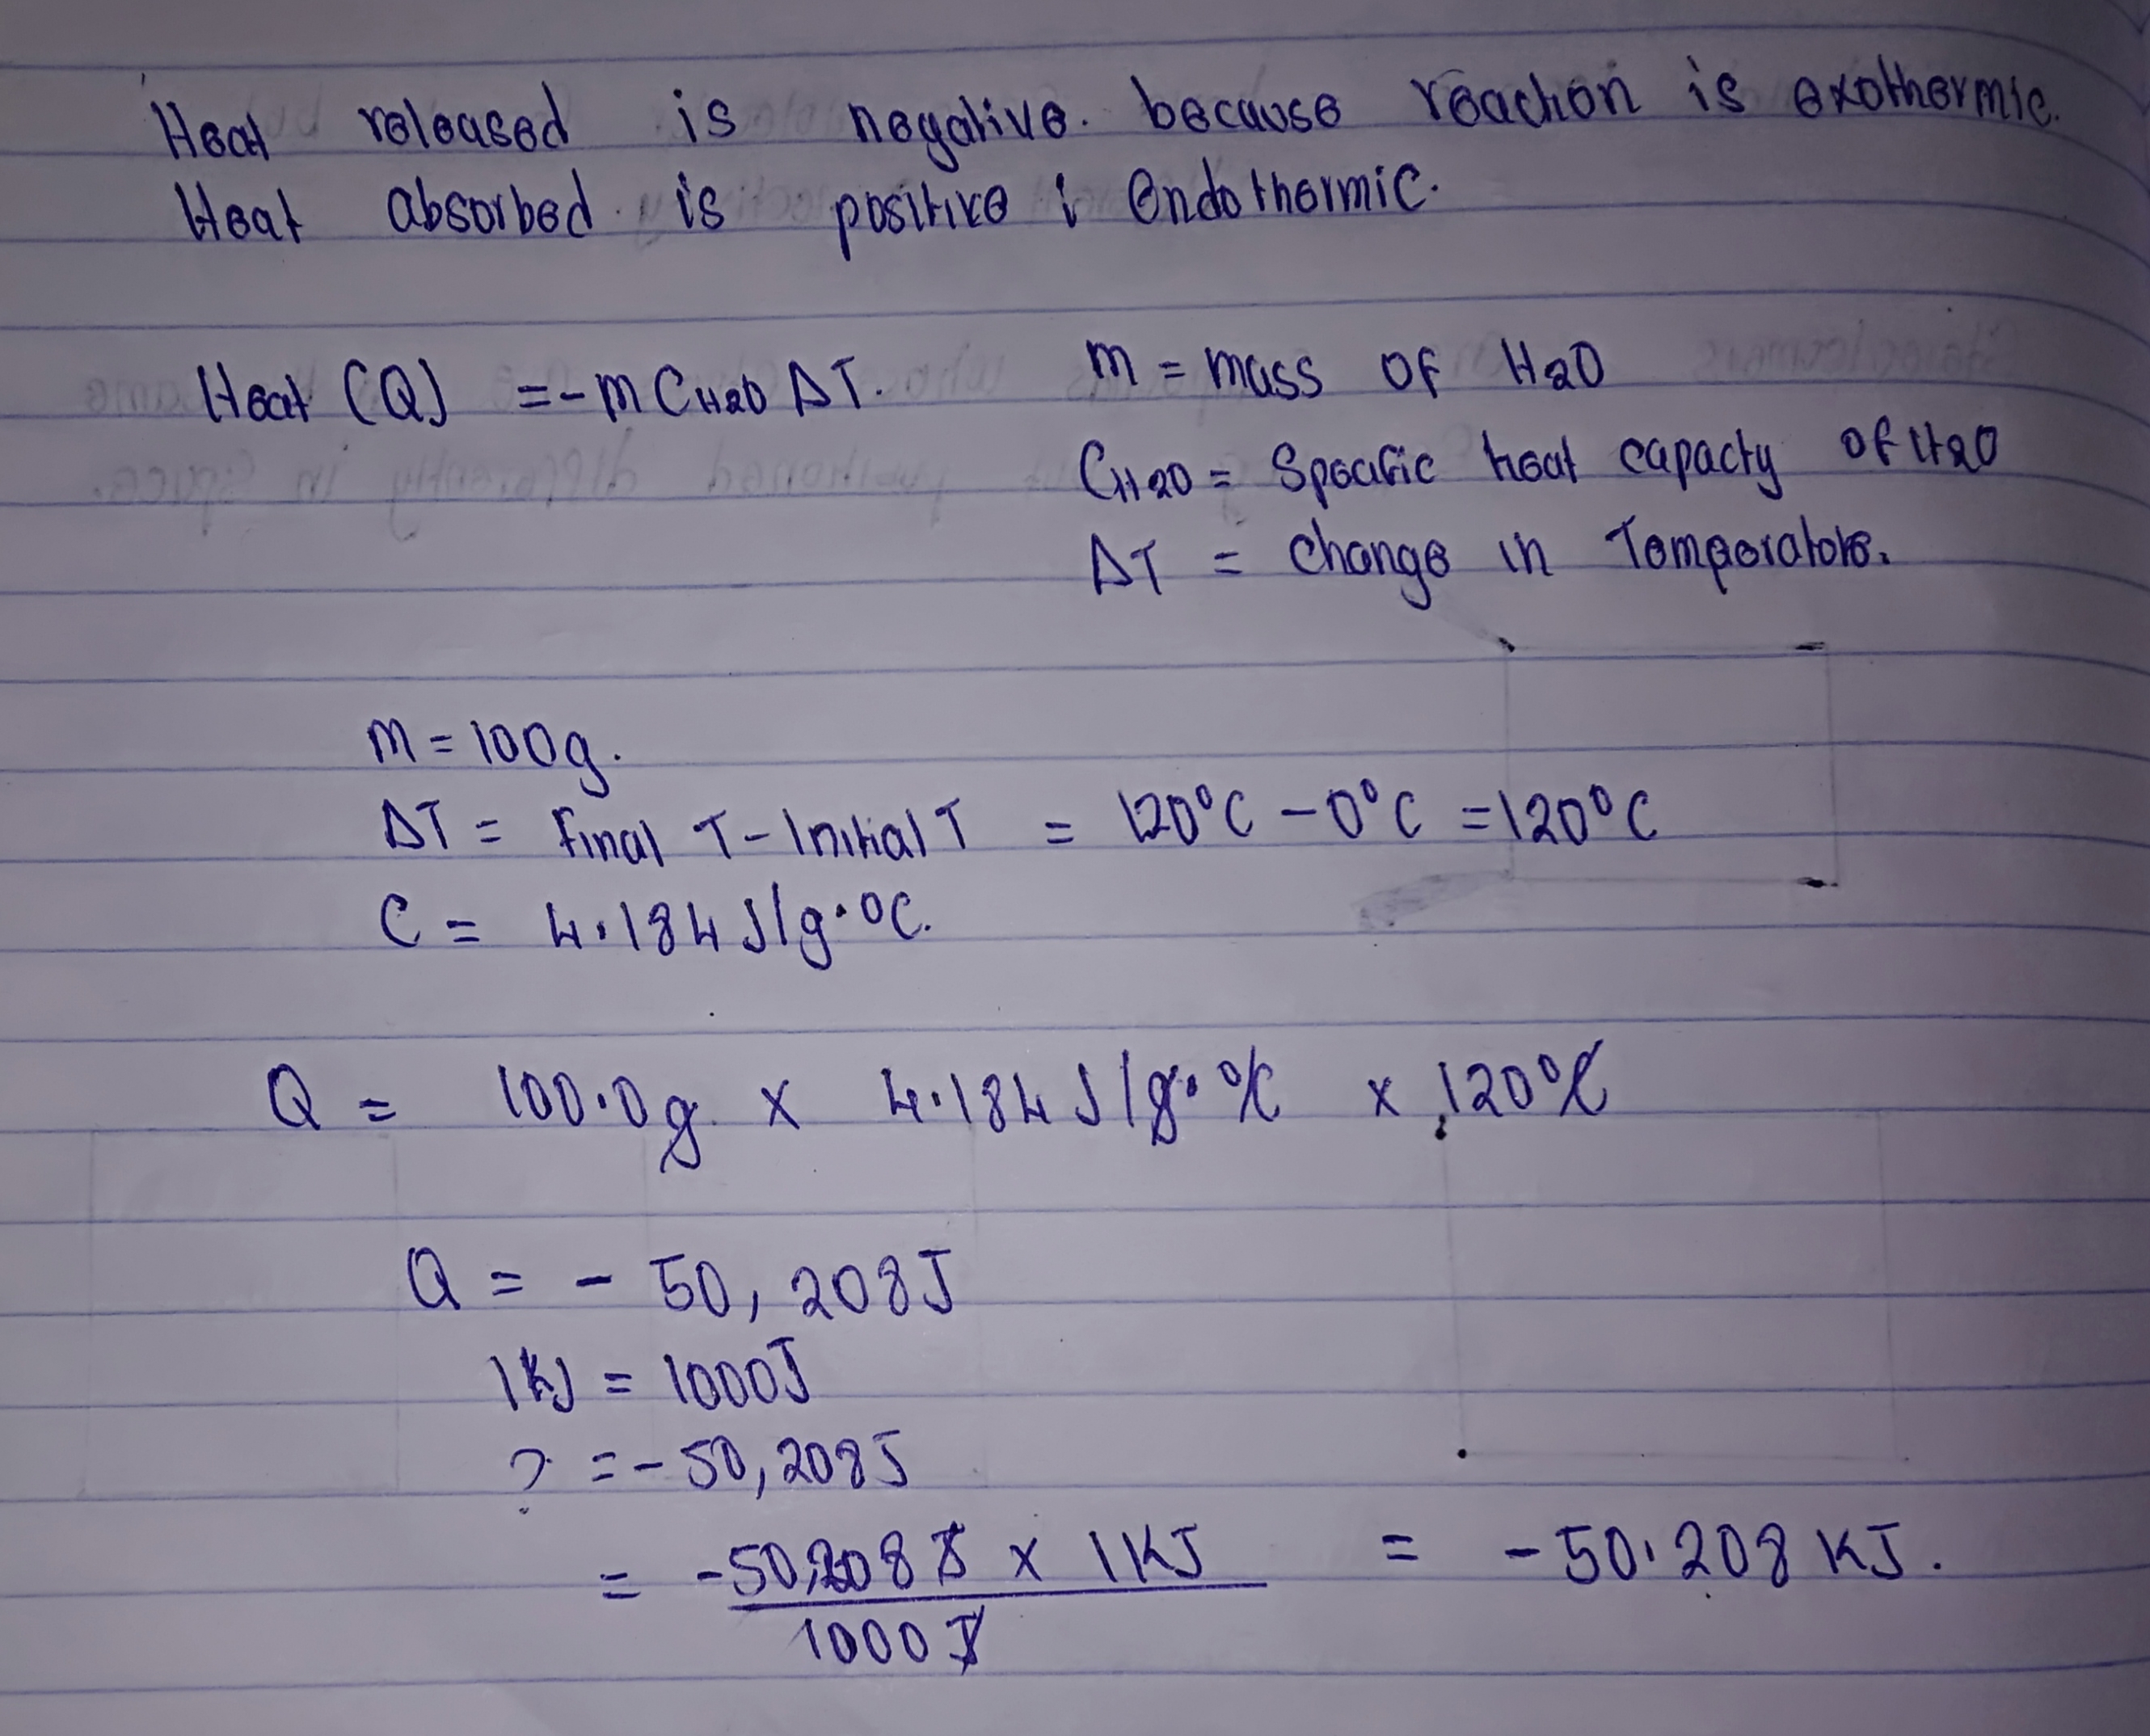 Heat released is negative. because reaction is exothermic.
Heat absorbed is positive i endothermic.
Heat (Q) = - m CH2O ΔT.
m = mass of H2O
CH2O = Specific heat capacty of H2O
ΔT = change in Temperature.
m = 100g.
ΔT = Final T - Initial T = 120°C - 0°C = 120°C
C = 4.184 J/g.°C.
Q = 100.0g x 4.184 J/g.°C x 120°C
Q = - 50,208J
1KJ = 1000J
? = - 50,208J
= -50,208 J x 1KJ = -50.208 KJ.
1000 J